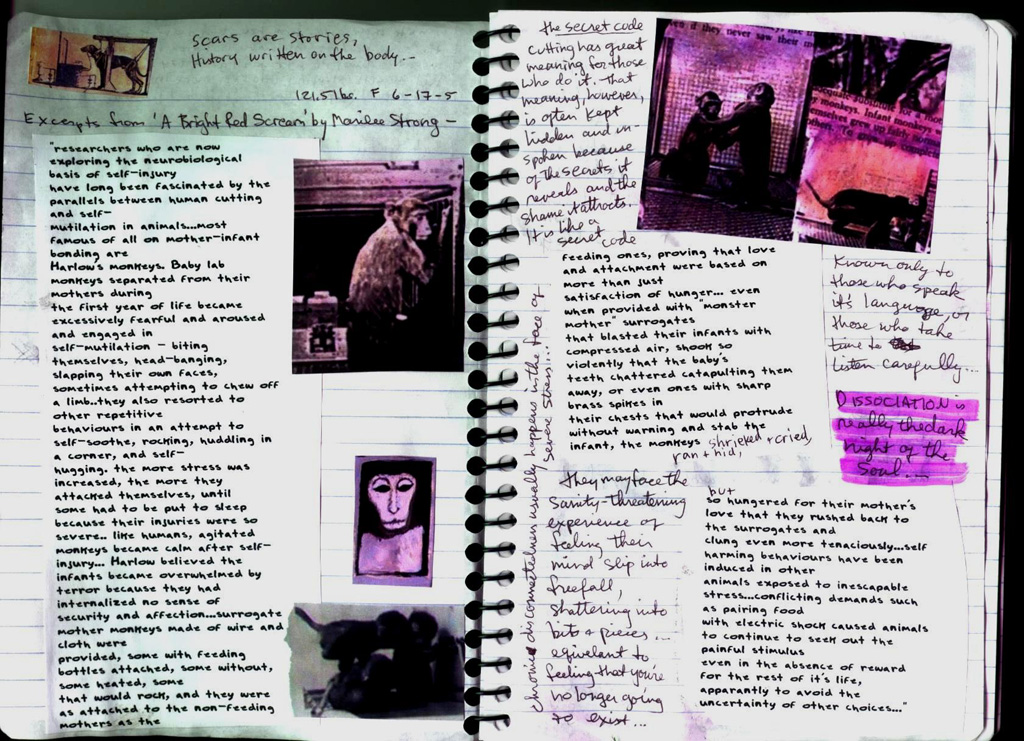 scars are stories,
History written on the body...
121.5 lbs. F 6-17-5
Excerpts from 'A Bright Red Scream' by Marilee Strong -
"researchers who are now
exploring the neurobiological
basis of self-injury
have long been fascinated by the
parallels between human cutting
and self-
mutilation in animals...most
famous of all on mother-infant
bonding are
Harlow's monkeys. Baby lab
monkeys separated from their
mothers during
the first year of life became
excessively fearful and aroused
and engaged in
self-mutilation - biting
themselves, head-banging,
slapping their own faces,
sometimes attempting to chew off
a limb..they also resorted to
other repetitive
behaviours in an attempt to
self-soothe, rocking, huddling in
a corner, and self-
hugging. the more stress was
increased, the more they
attacked themselves, until
some had to be put to sleep
because their injuries were so
severe.. like humans, agitated
monkeys became calm after self-
injury... Harlow believed the
infants became overwhelmed by
terror because they had
internalized no sense of
security and affection...surrogate
mother monkeys made of wire and
cloth were
provided, some with feeding
bottles attached, some without,
some heated, some
that would rock, and they were
as attached to the non-feeding
mothers as the
the secret code
cutting has great
meaning for those
who do it. that
meaning, however,
is often kept
hidden and un-
spoken because
of the secrets it
reveals and the
shame it attracts.
It is like a
secret code
if they never saw their
monkeys. Infant monkeys
feeding ones, proving that love
and attachment were based on
more than just
satisfaction of hunger... even
when provided with "monster
mother" surrogates
that blasted their infants with
compressed air, shook so
violently that the baby's
teeth chattered catapulting them
away, or even ones with sharp
brass spikes in
their chests that would protrude
without warning and stab the
infant, the monkeys shrieked + cried,
ran + hid,
known only to
those who speak
it's language, or
those who take
time to
listen carefully...
DISSOCIATION is
really the dark
night of the
soul...
chronic disconnectedness usually happens in the face of
severe stress...
they may face the
sanity-threatening
experience of
feeling their
mind slip into
freefall,
shattering into
bits + pieces...
eqivelant to
feeling that you're
no longer going
to exist...
but
so hungered for their mother's
love that they rushed back to
the surrogates and
clung even more tenaciously...self
harming behaviours have been
induced in other
animals exposed to inescapable
stress...conflicting demands such
as pairing food
with electric shock caused animals
to continue to seek out the
painful stimulus
even in the absence of reward
for the rest of it's life,
apparantly to avoid the
uncertainty of other choices..."